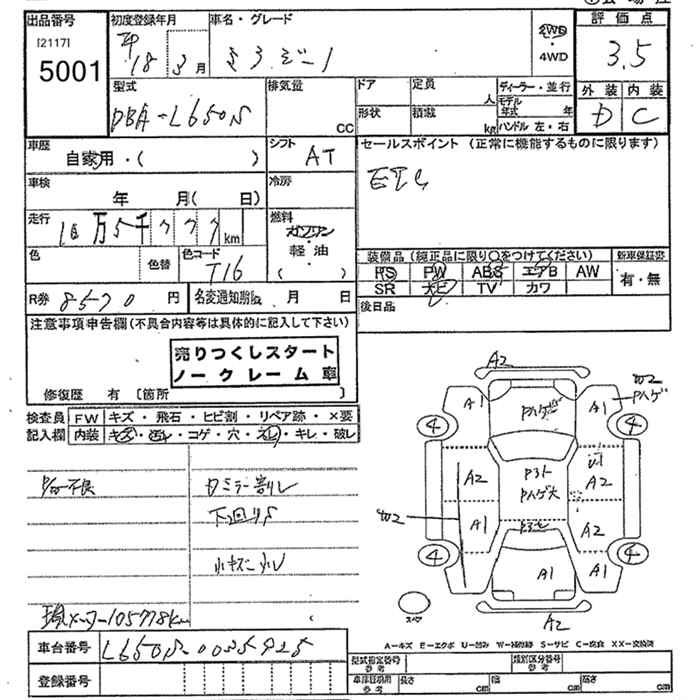 出品番号 初度登録年月 車名・グレード 評価点
[2117]
5001
18 3月
2WD
・
4WD
3.5
型式 排気量 ドア 定員 ディーラー・並行 外装 内装
DBA-L650S
CC 形状 積載 人 モデル年式 年
kg ハンドル 左・右
D C
車歴 シフト セールスポイント (正常に機能するものに限ります)
自家用・( ) AT
ETC
車検 冷房
年 月( 日)
走行 燃料
10万5千777km
ガソリン
・
軽油
( )
色 色替 色コード
T16
装備品 (純正品に限り○をつけてください) 新車保証書
PS PW ABS エアB AW 有・無
SR ナビ TV カワ
R券 8570円 名変通知期限 月 日
後日品
注意事項申告欄(不具合内容等は具体的に記入して下さい)
売りつくしスタート
ノークレーム車
修復歴 有 [箇所 ]
検査員 FW キズ・飛石・ヒビ割・リペア跡・×要
記入欄 内装 キズ・汚レ・コゲ・穴・スレ・キレ・破レ
P/W不良
カミラー割レ
下回りS
小キズ小U
現メーター105778km
A2
W2
Pハゲ
A1 A1
Pハゲ
4 4
A2 U1 A2
Pハゲ大
W2
A1 A2
4 4
A1
A2
スペア
A-キズ E-エクボ U-凹み W-補修跡 S-サビ C-腐食 XX-交換済
車台番号 L650S-0025928
登録番号
型式指定番号 参考 類別区分番号 参考
車庫証明用 参考 長さ cm 幅 cm 高さ cm